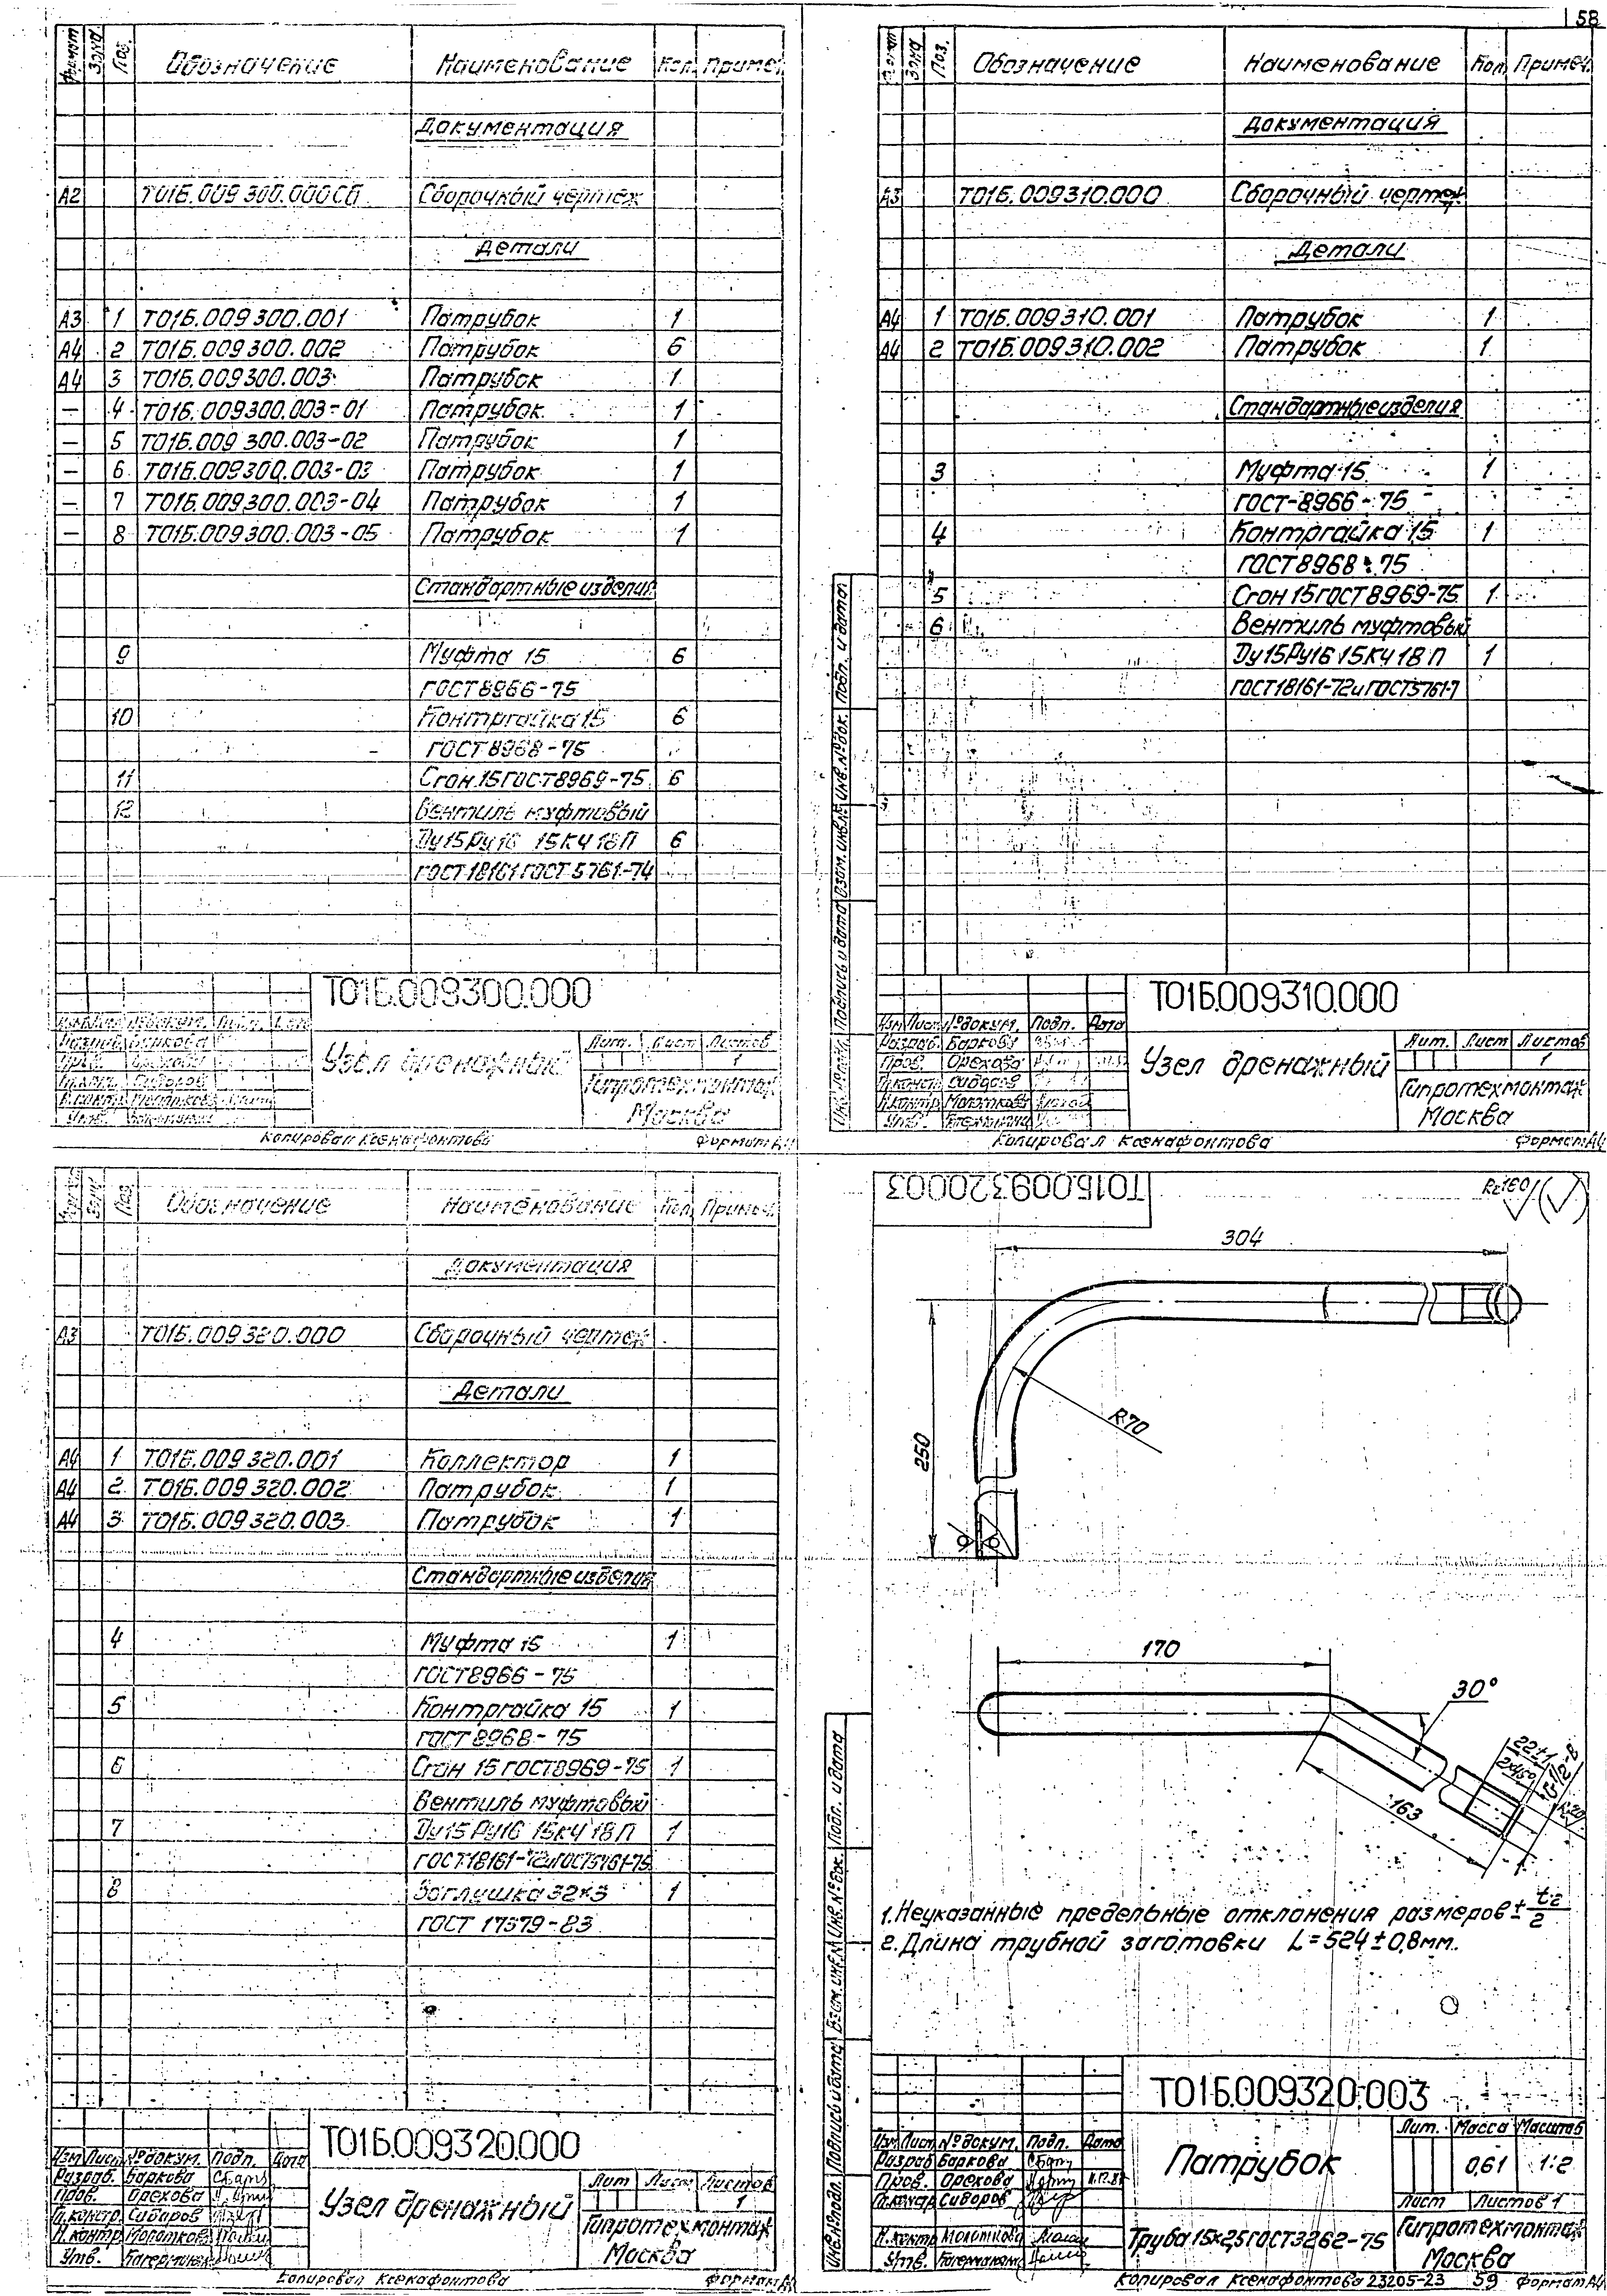 58
Формат Зона Поз. Обозначение Наименование Кол. Примеч.
Документация
А2 Т01Б.009 300.000СБ Сборочный чертеж
Детали
А3 1 Т01Б.009 300.001 Патрубок 1
А4 2 Т01Б.009 300.002 Патрубок 6
А4 3 Т01Б.009 300.003 Патрубок 1
— 4 Т01Б.009300.003-01 Патрубок 1
— 5 Т01Б.009 300.003-02 Патрубок 1
— 6 Т01Б.009300.003-03 Патрубок 1
— 7 Т01Б.009300.003-04 Патрубок 1
— 8 Т01Б.009300.003-05 Патрубок 1
Стандартные изделия
9 Муфта 15 6
ГОСТ 8966-75
10 Контргайка 15 6
ГОСТ 8968-75
11 Сгон 15 ГОСТ 8969-75 6
12 Вентиль муфтовый
Ду15 Ру16 15КЧ 18П 6
ГОСТ 18161 ГОСТ 5761-74
Т01Б.009300.000
Узел дренажный
Лит. Лист Листов
1
Гипротехмонтаж
Москва
Копировал Ксенафонтова Формат А4
Зона Поз. Обозначение Наименование Кол. Примеч.
Документация
А3 Т01Б.009310.000 Сборочный чертеж
Детали
А4 1 Т01Б.009310.001 Патрубок 1
А4 2 Т01Б.009310.002 Патрубок 1
Стандартные изделия
3 Муфта 15 1
ГОСТ-8966-75
4 Контргайка 15 1
ГОСТ 8968-75
5 Сгон 15 ГОСТ 8969-75 1
6 Вентиль муфтовый
Ду15 Ру16 15КЧ 18П 1
ГОСТ 18161-72 и ГОСТ 5761-7
Инв.№подл. Подпись и дата Взам.инв.№ Инв.№дубл. Подп. и дата
Т01Б.009310.000
Изм Лист №докум. Подп. Дата
Разраб. Баркова
Пров. Орехова
Узел дренажный
Лит. Лист Листов
1
Гипротехмонтаж
Москва
Копировал Ксенафонтова Формат А4
Поз. Обозначение Наименование Кол. Примеч.
Документация
А3 Т01Б.009320.000 Сборочный чертеж
Детали
А4 1 Т01Б.009 320.001 Коллектор 1
А4 2 Т01Б.009 320.002 Патрубок 1
А4 3 Т01Б.009 320.003 Патрубок 1
Стандартные изделия
4 Муфта 15 1
ГОСТ 8966-75
5 Контргайка 15 1
ГОСТ 8968-75
6 Сгон 15 ГОСТ 8969-75 1
Вентиль муфтовый
7 Ду15 Ру16 15КЧ 18П 1
ГОСТ 18161-72 и ГОСТ 5761-75
8 Заглушка 32×3 1
ГОСТ 17379-83
Т01Б.009320.000
Изм Лист №докум. Подп. Дата
Разраб. Баркова
Пров. Орехова
Узел дренажный
Лит Лист Листов
1
Гипротехмонтаж
Москва
Копировал Ксенафонтова Формат А4
Т01Б.009320.003
Rz160
304
250
R70
170
30°
163
22±1
2×45°
G1/2-В
1. Неуказанные предельные отклонения размеров ± t2/2
2. Длина трубной заготовки L=524±0,8мм.
Т01Б.009320.003
Изм Лист №докум. Подп. Дата
Разраб Баркова
Пров. Орехова
Патрубок
Лит. Масса Масштаб
0,61 1:2
Лист Листов 1
Труба 15×2,5 ГОСТ 3262-75
Гипротехмонтаж
Москва
Копировал Ксенафонтова 23205-23 59 Формат А4